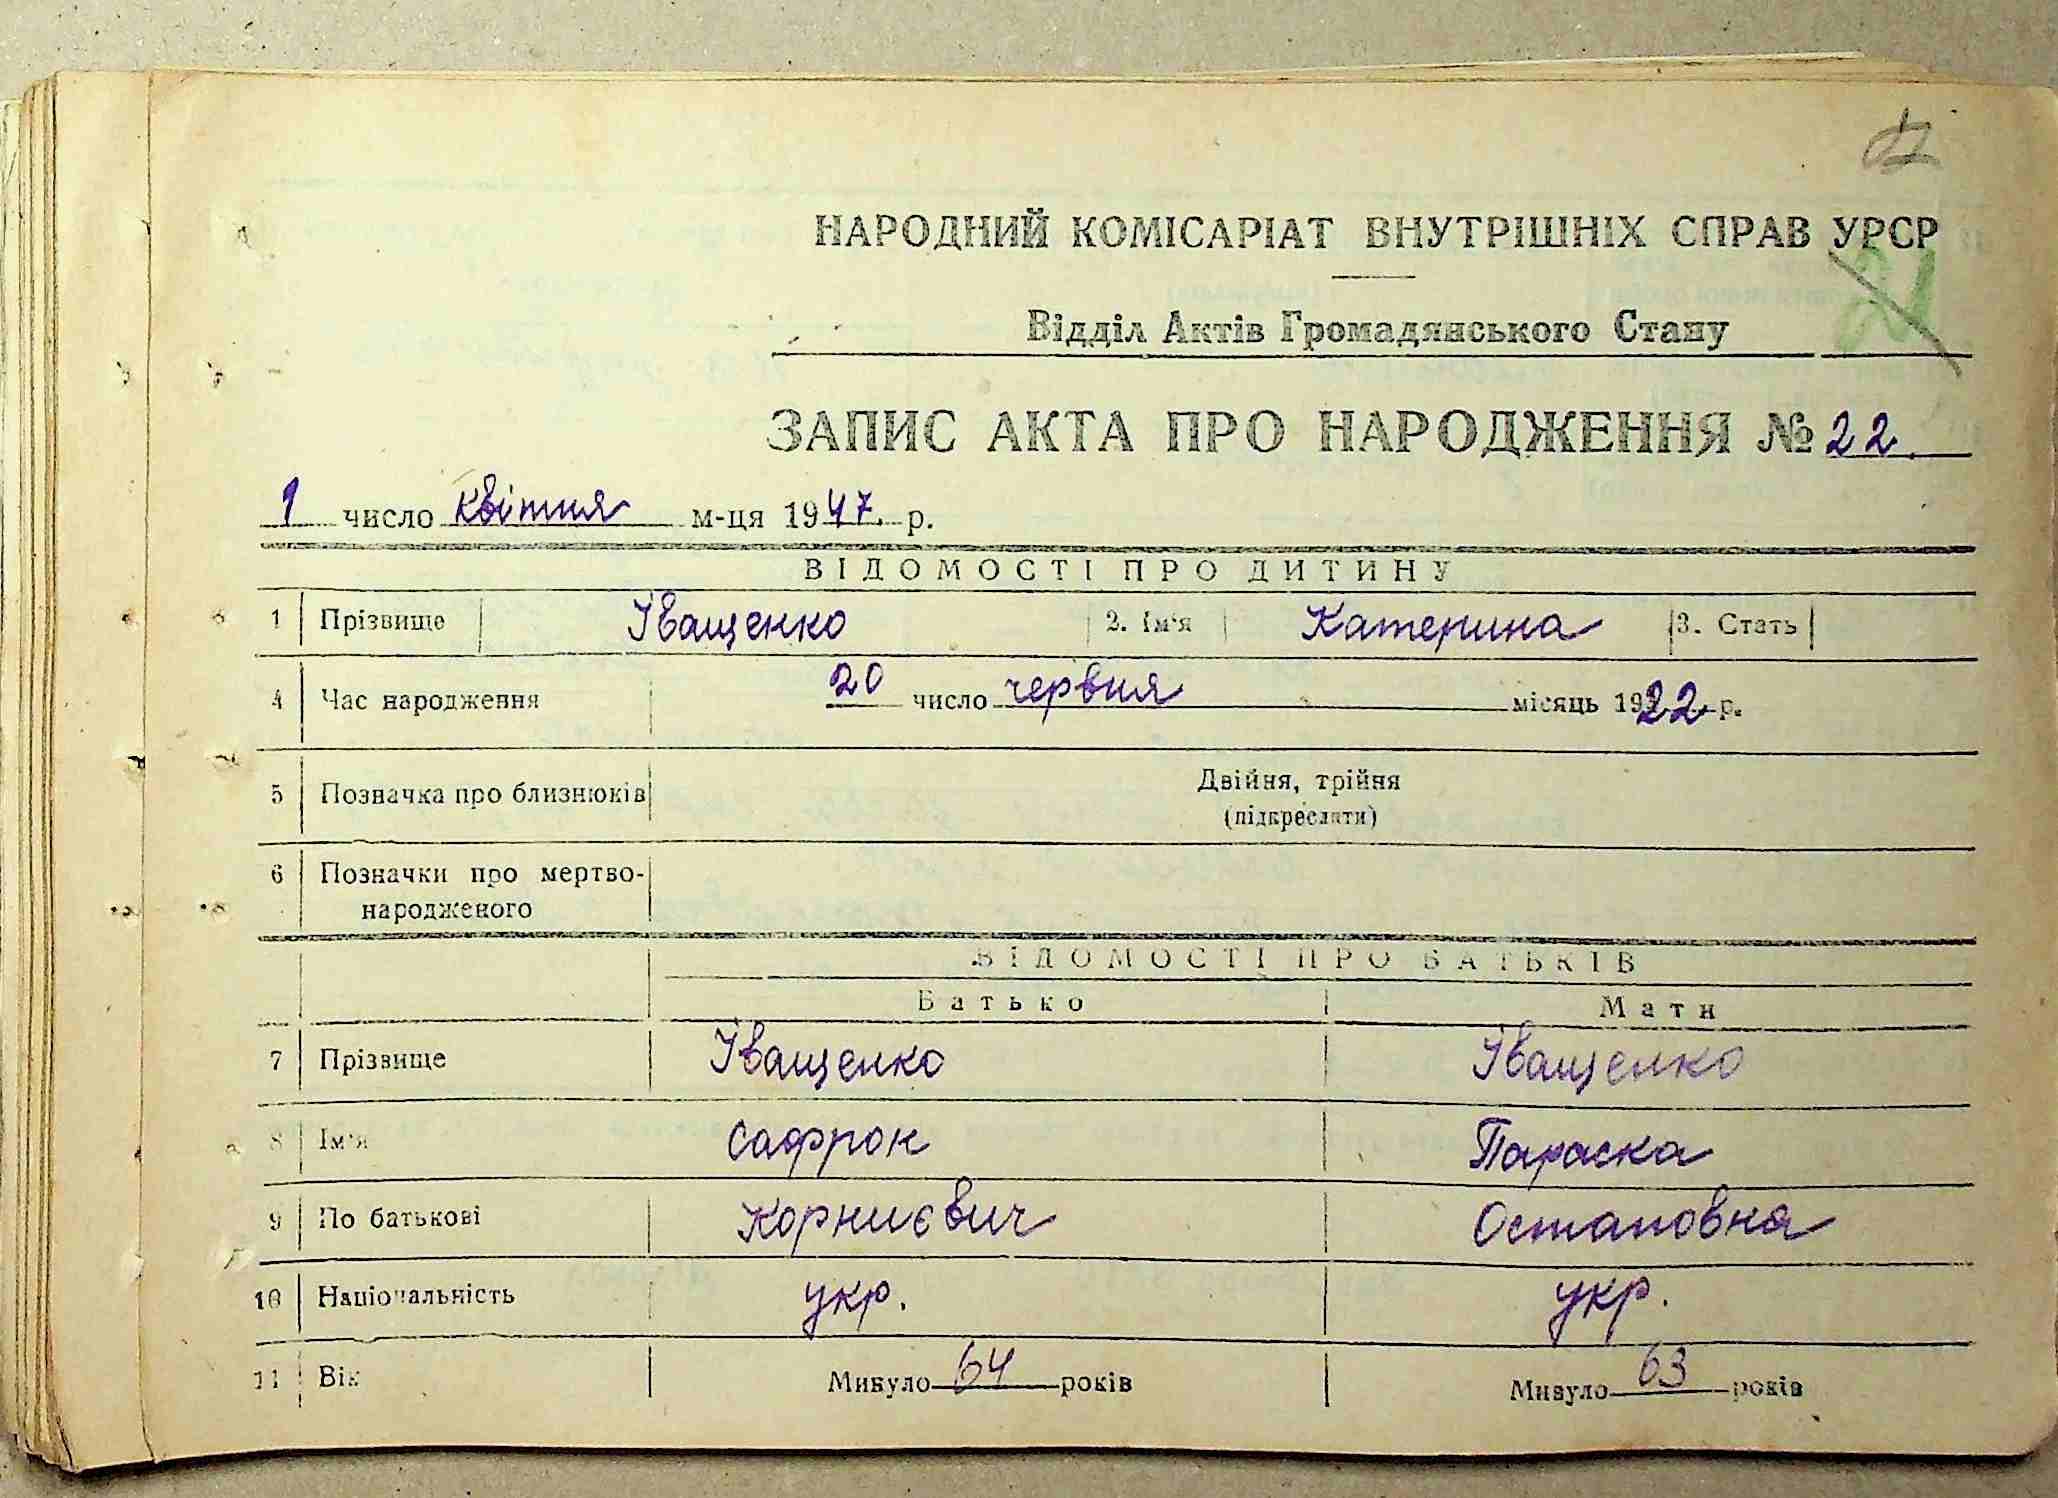 НАРОДНИЙ КОМІСАРІАТ ВНУТРІШНІХ СПРАВ УРСР
Відділ Актів Громадянського Стану
ЗАПИС АКТА ПРО НАРОДЖЕННЯ № 22.
1 число квітня м-ця 1947. р.
ВІДОМОСТІ ПРО ДИТИНУ
1 Прізвище Іващенко 2. Ім'я Катерина 3. Стать
4 Час народження 20 число червня місяць 1922 р.
5 Позначка про близнюків Двійня, трійня
(підкреслити)
6 Позначки про мертво-
народженого
ВІДОМОСТІ ПРО БАТЬКІВ
Батько Мати
7 Прізвище Іващенко Іващенко
8 Ім'я Сафрон Параска
9 По батькові Корниєвич Остаповна
10 Національність укр. укр.
11 Вік Минуло 64 років Минуло 63 років